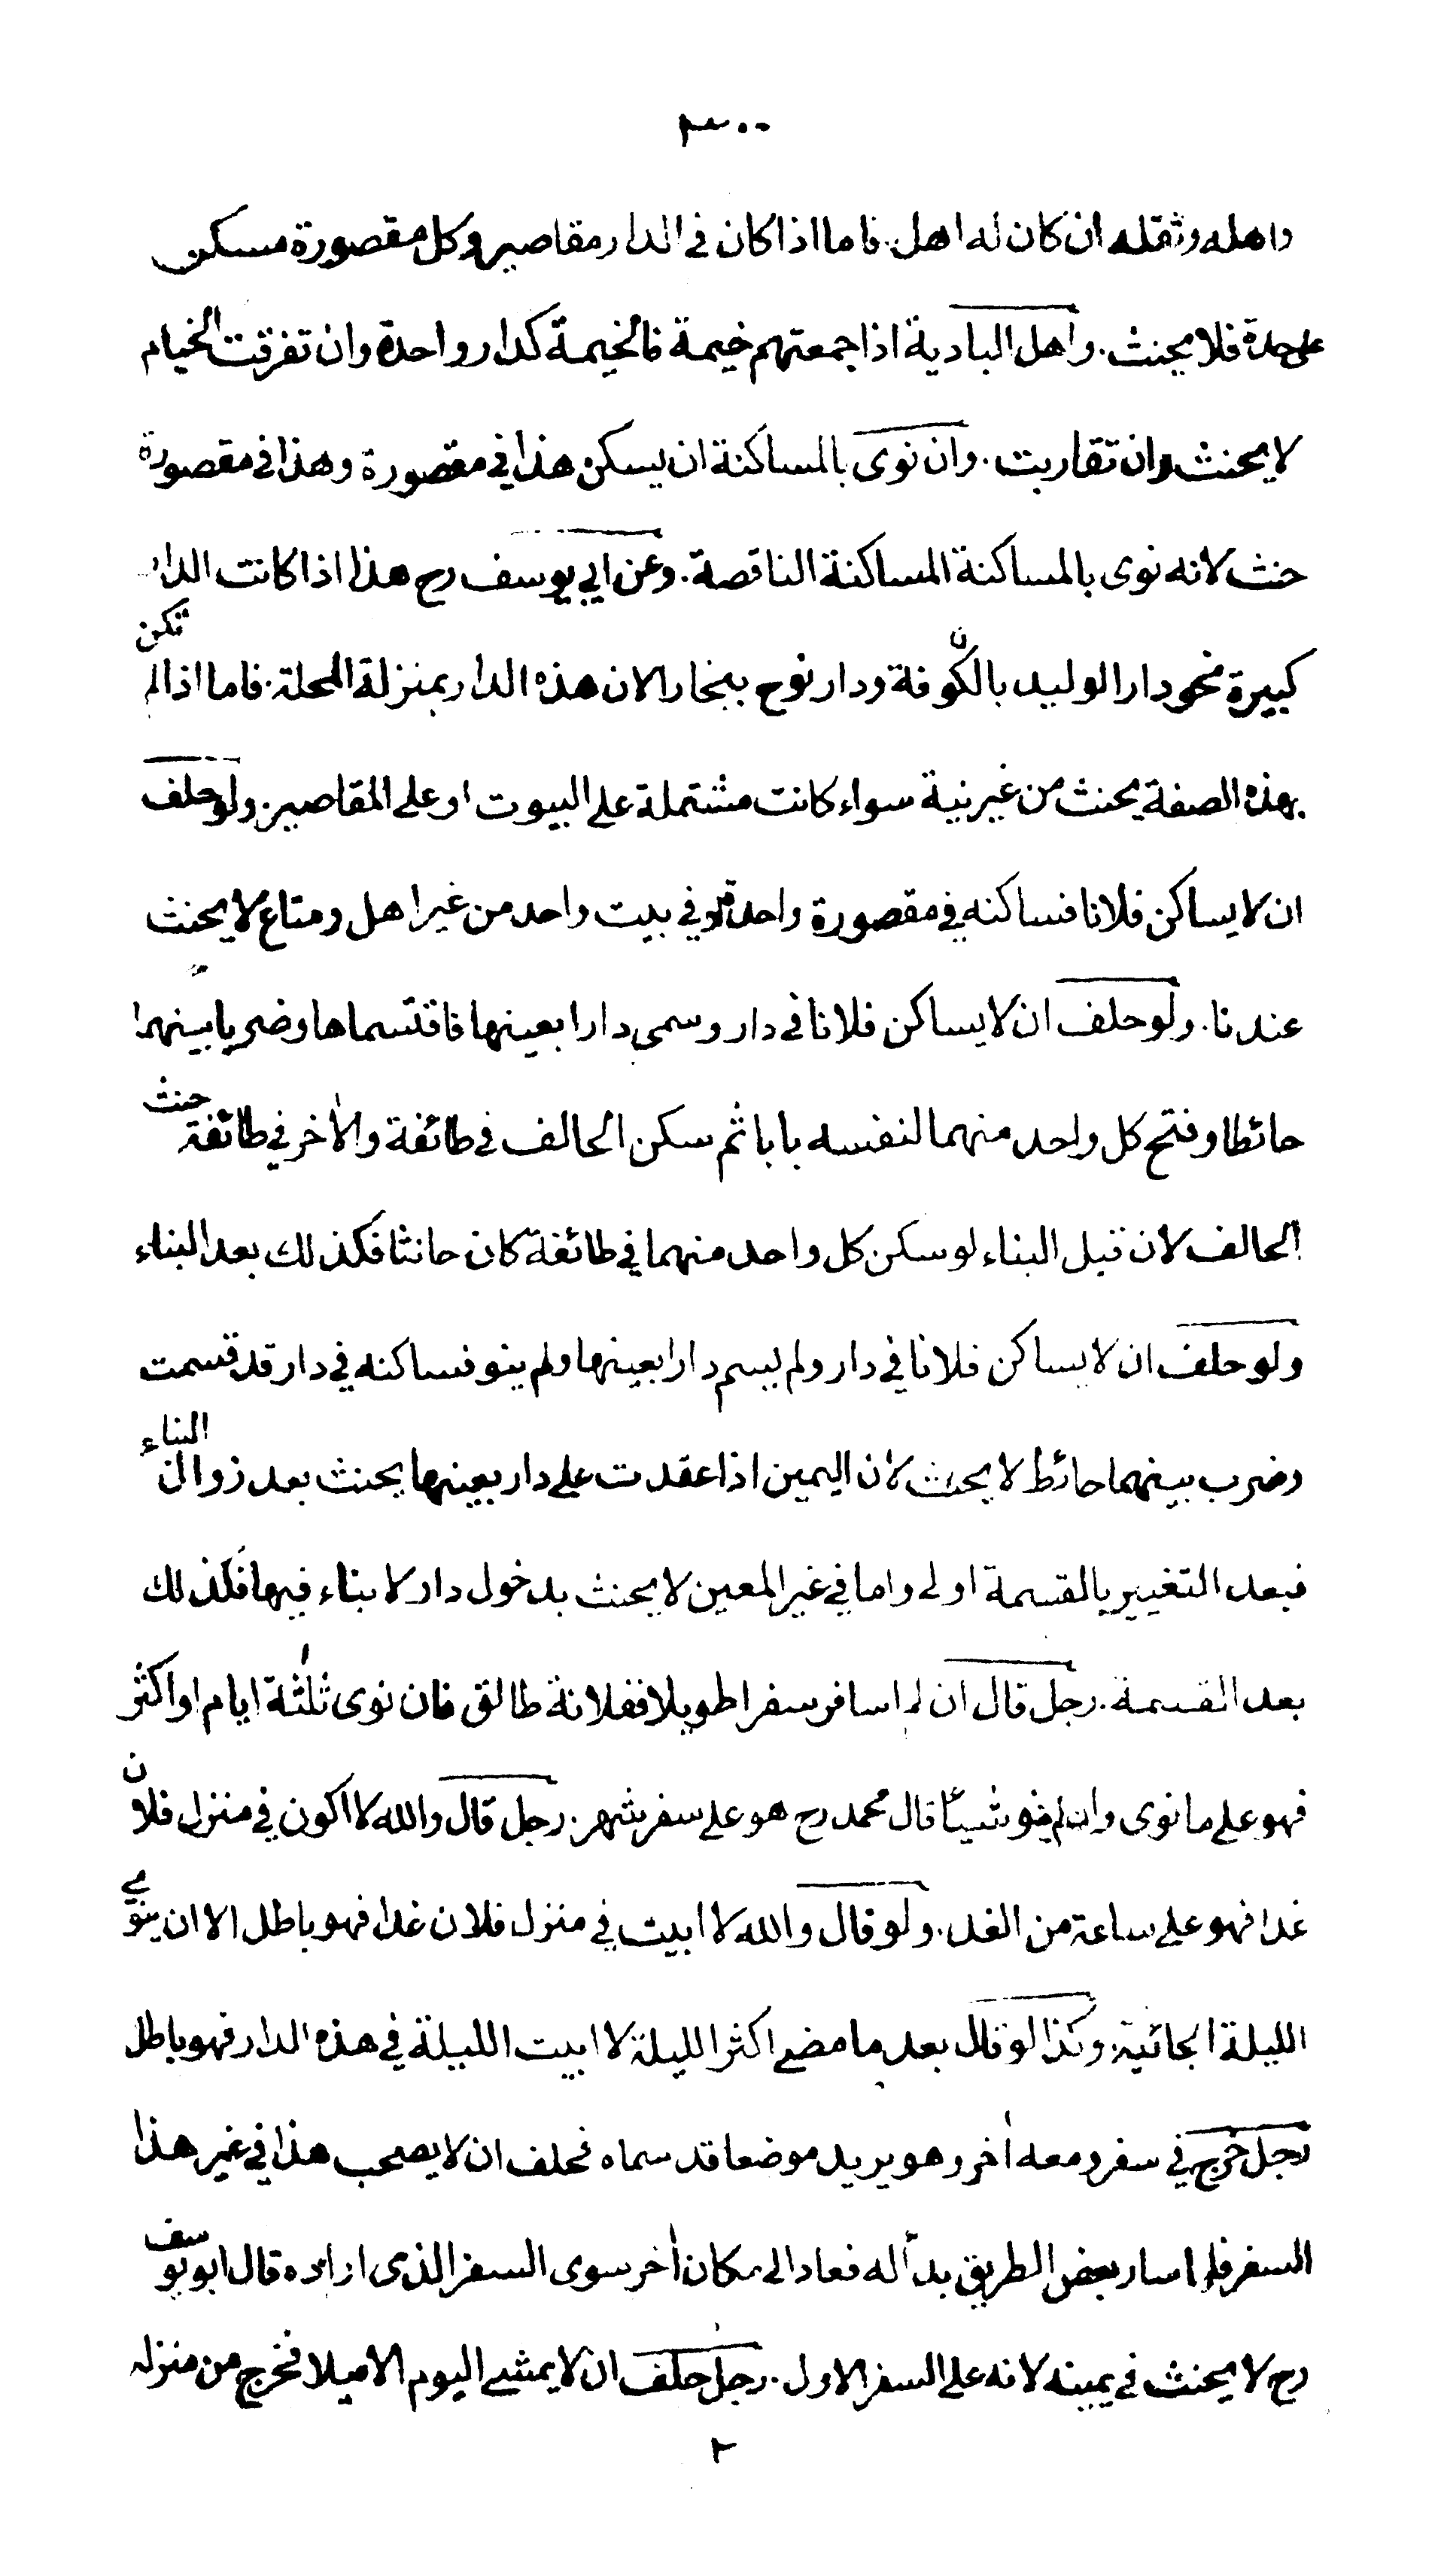 ٣٠٠
واهله وثقله ان كان له اهل. فاما اذا كان في الدار مقاصير وكل مقصورة مسكن
على حدة فلا يحنث. واهل البادية اذا جمعتهم خيمة فالخيمة كدار واحدة وان تفرقت الخيام
لا يحنث وان تقاربت. وان نوى بالمساكنة ان يسكن هذا في مقصورة وهذا في مقصورة
حنث لانه نوى بالمساكنة المساكنة الناقصة. وعن ابي يوسف رح هذا اذا كانت الدار
كبيرة نحو دار الوليد بالكوفة ودار نوح ببخارا لان هذه الدار بمنزلة المحلة. فاما اذا لم تكن
بهذه الصفة يحنث من غير نية سواء كانت مشتملة على البيوت او على المقاصير. ولو حلف
ان لا يساكن فلانا فساكنه في مقصورة واحدة او في بيت واحد من غير اهل ومتاع لا يحنث
عندنا. ولو حلف ان لا يساكن فلانا في دار وسمى دارا بعينها فاقتسماها وضربا بينهما
حائطا وفتح كل واحد منهما لنفسه بابا ثم سكن الحالف في طائفة والآخر في طائفة حنث
الحالف لان قبل البناء لو سكن كل واحد منهما في طائفة كان حانثا فكذلك بعد البناء
ولو حلف ان لا يساكن فلانا في دار ولم يسم دارا بعينها ولم ينو فساكنه في دار قد قسمت
وضرب بينهما حائط لا يحنث لان اليمين اذا عقدت على دار بعينها يحنث بعد زوال البناء
فبعد التغيير بالقسمة اولى واما في غير المعين لا يحنث بدخول دار لا بناء فيها فكذلك
بعد القسمة. رجل قال ان لم اسافر سفرا طويلا ففلانة طالق فان نوى ثلٰثة ايام او اكثر
فهو على ما نوى وان لم ينو شيئًا قال محمد رح هو على سفر شهر. رجل قال والله لا اكون في منزل فلان
غدا فهو على ساعة من الغد. ولو قال والله لا ابيت في منزل فلان غدا فهو باطل الا ان ينوي
الليلة الجائية. وكذا لو قال بعد ما مضى اكثر الليلة لا ابيت الليلة في هذه الدار فهو باطل
رجل خرج في سفر ومعه اٰخر وهو يريد موضعا قد سماه فحلف ان لا يصحب هذا في غير هذا
السفر فلما سار بعض الطريق بدأ له فعاد الى مكان اٰخر سوى السفر الذى اراده قال ابو يوسف
رح لا يحنث في يمينه لانه على السفر الاول. رجل حلف ان لا يمشى اليوم الا ميلا فخرج من منزله
٢